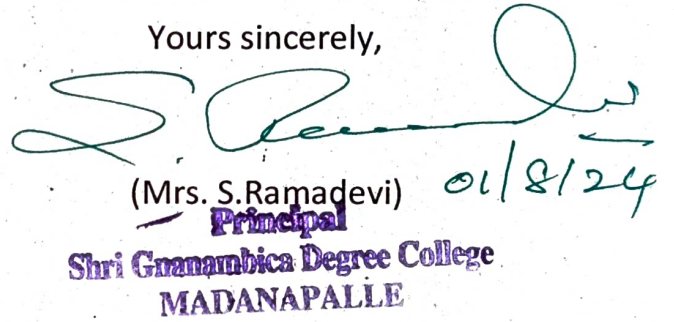 Yours sincerely,
S. Ramadevi
01/8/24
(Mrs. S.Ramadevi)
Principal
Shri Gnanambica Degree College
MADANAPALLE